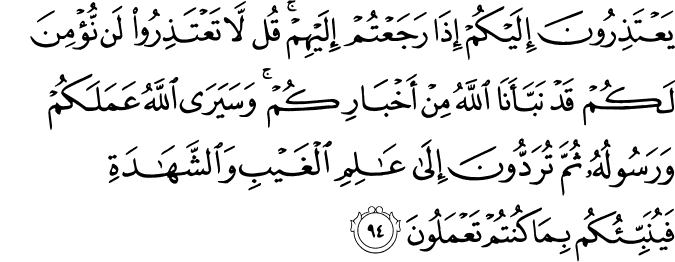 يَعْتَذِرُونَ إِلَيْكُمْ إِذَا رَجَعْتُمْ إِلَيْهِمْ ۚ قُل لَّا تَعْتَذِرُوا۟ لَن نُّؤْمِنَ
لَكُمْ قَدْ نَبَّأَنَا ٱللَّهُ مِنْ أَخْبَارِكُمْ ۚ وَسَيَرَى ٱللَّهُ عَمَلَكُمْ
وَرَسُولُهُۥ ثُمَّ تُرَدُّونَ إِلَىٰ عَـٰلِمِ ٱلْغَيْبِ وَٱلشَّهَـٰدَةِ
فَيُنَبِّئُكُم بِمَا كُنتُمْ تَعْمَلُونَ ٩٤